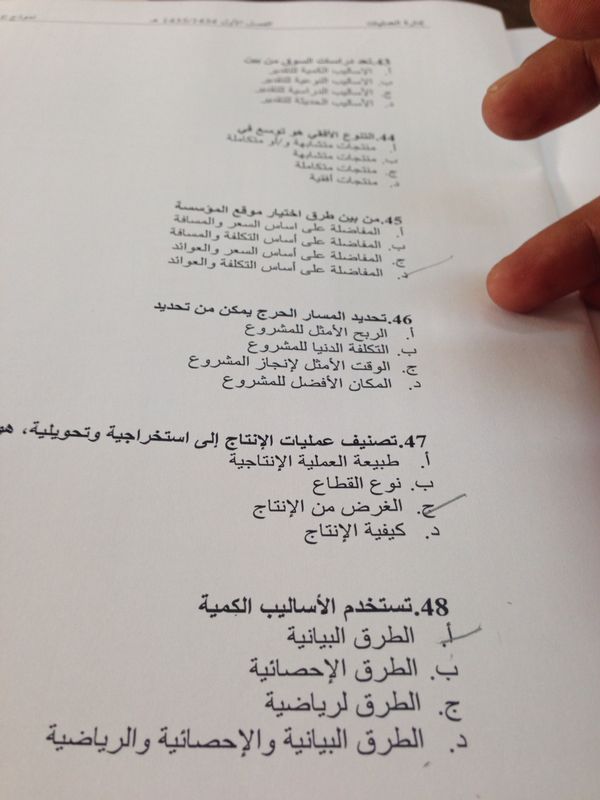 إدارة العمليات الفصل الأول 1435/1434 هـ
43.تعد دراسات السوق من بين
أ. الأساليب الكمية للتقدير
ب. الأساليب النوعية للتقدير
ج. الأساليب الدراسية للتقدير
د. الأساليب الحديثة للتقدير
44.التنوع الأفقي هو توسع في
أ. منتجات متشابهة و/أو متكاملة
ب. منتجات متشابهة
ج. منتجات متكاملة
د. منتجات أفقية
45.من بين طرق اختيار موقع المؤسسة
أ. المفاضلة على اساس السعر والمسافة
ب. المفاضلة على أساس التكلفة والمسافة
ج. المفاضلة على أساس السعر والعوائد
د. المفاضلة على أساس التكلفة والعوائد
46.تحديد المسار الحرج يمكن من تحديد
أ. الربح الأمثل للمشروع
ب. التكلفة الدنيا للمشروع
ج. الوقت الأمثل لإنجاز المشروع
د. المكان الأفضل للمشروع
47.تصنيف عمليات الإنتاج إلى استخراجية وتحويلية، هو
أ. طبيعة العملية الإنتاجية
ب. نوع القطاع
ج. الغرض من الإنتاج
د. كيفية الإنتاج
48.تستخدم الأساليب الكمية
أ. الطرق البيانية
ب. الطرق الإحصائية
ج. الطرق لرياضية
د. الطرق البيانية والإحصائية والرياضية